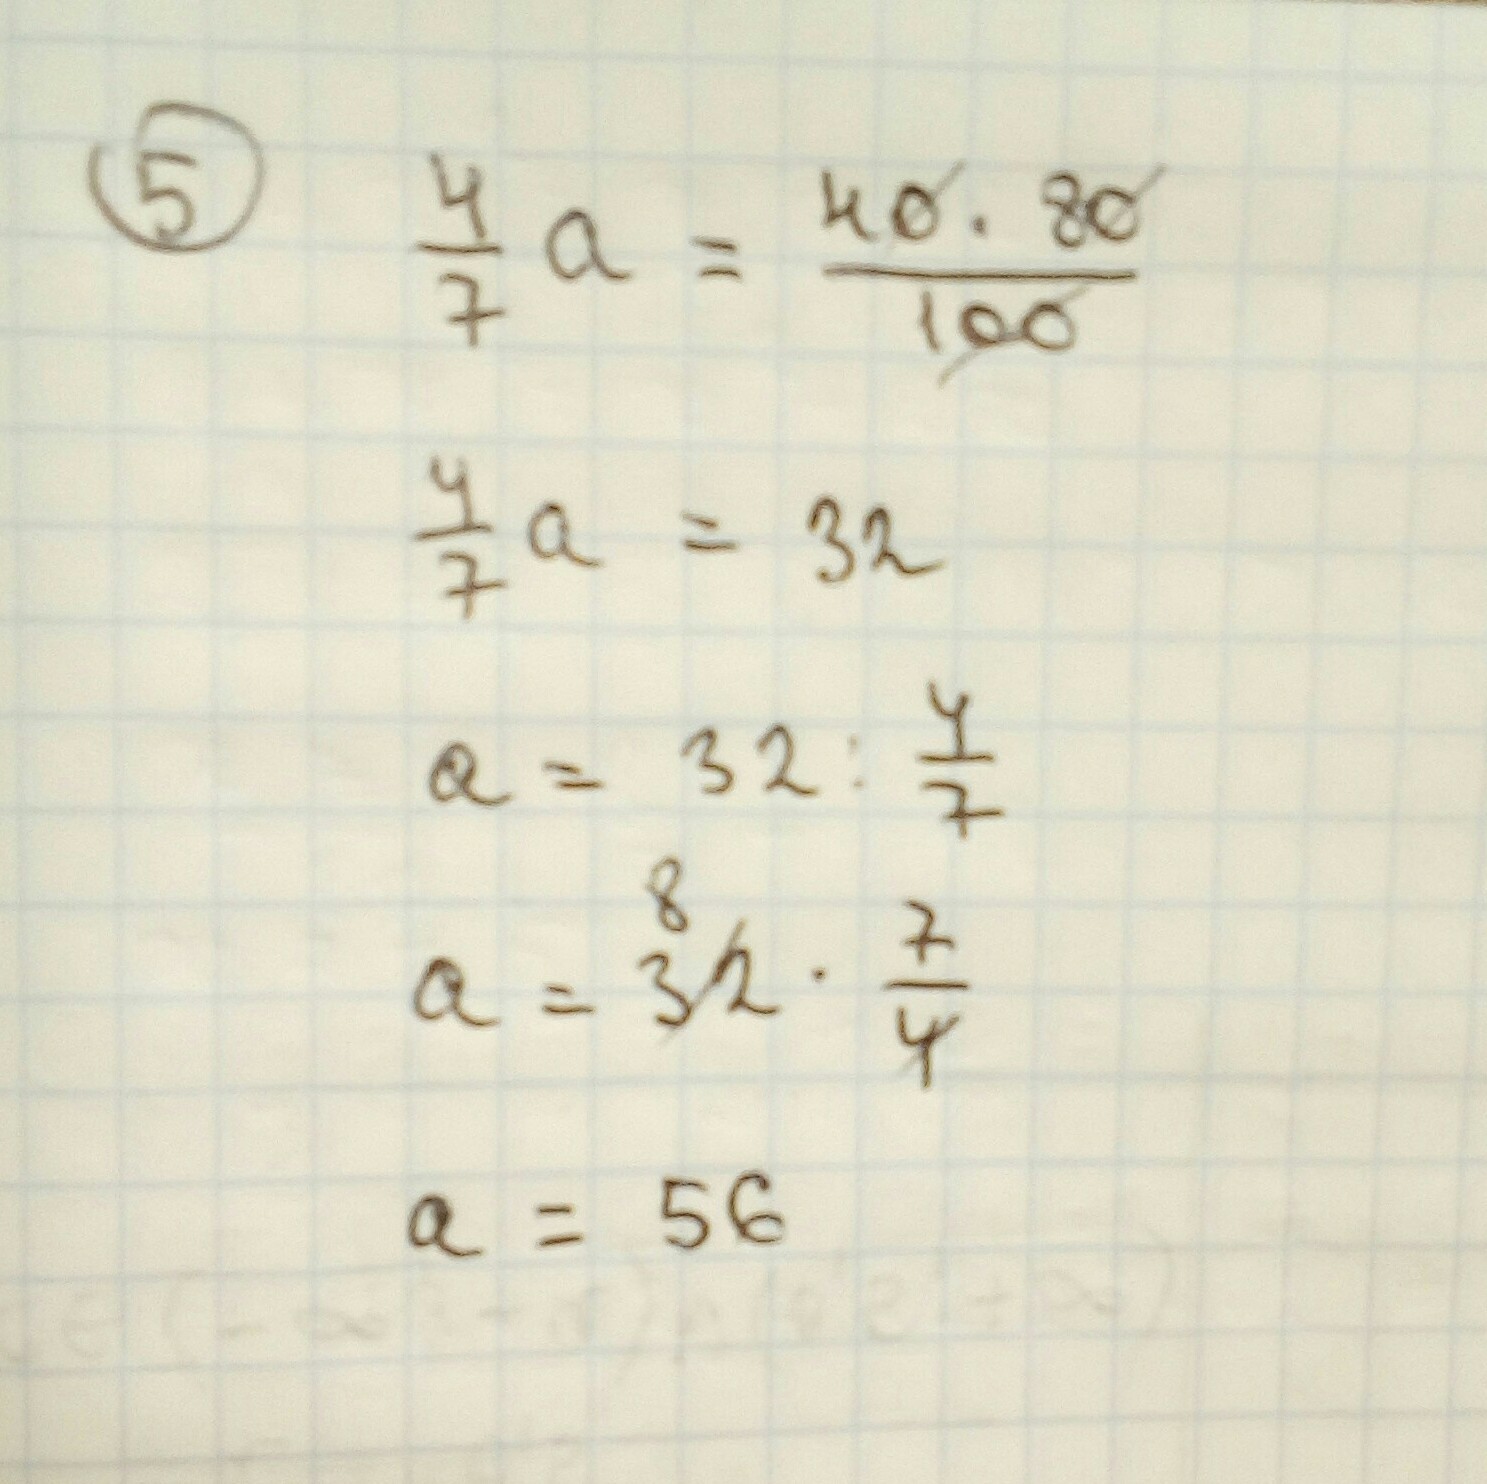 5 4/7 a = 40 · 80 / 100
4/7 a = 32
a = 32 : 4/7
8
a = 32 · 7/4
a = 56